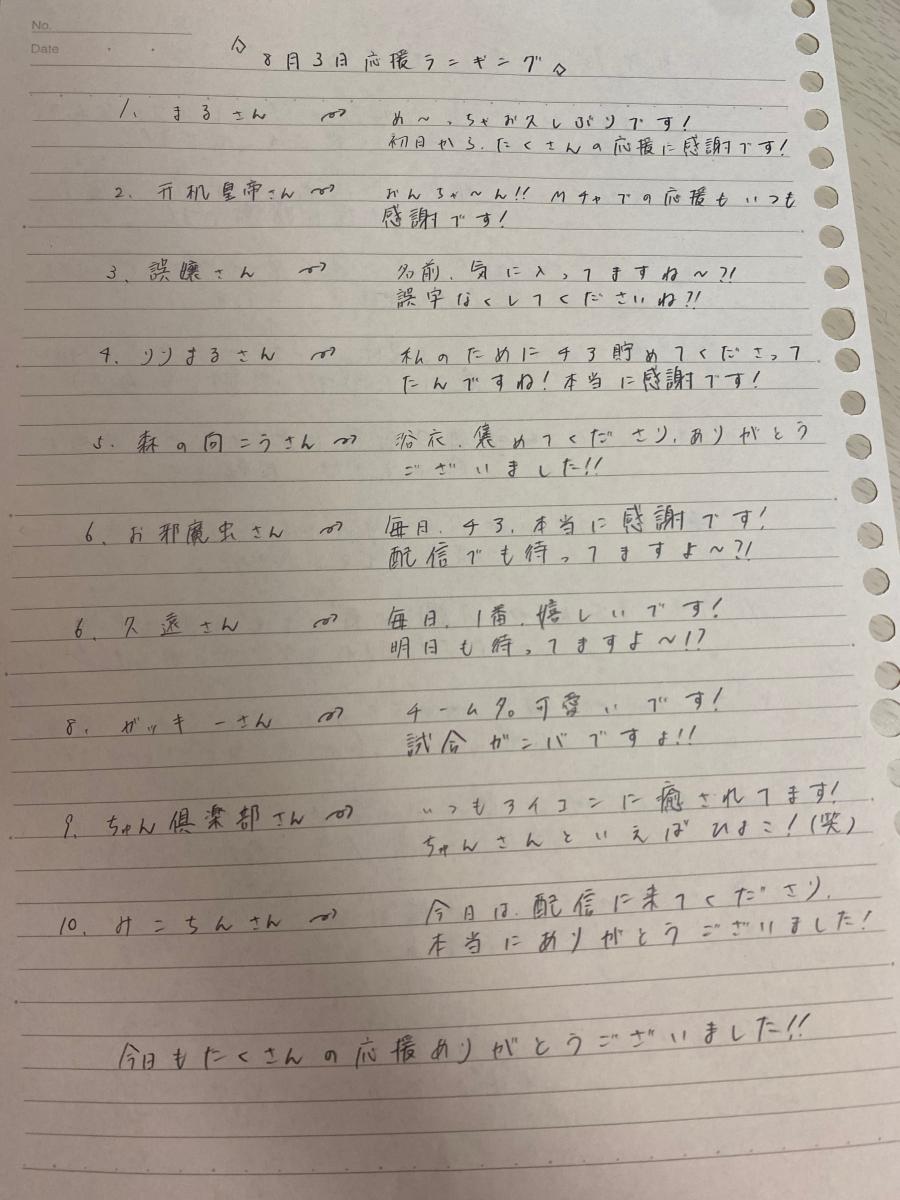 No.
Date
◇ 8月3日応援ランキング ◇
1. まるさん
め〜っちゃお久しぶりです!
初日から、たくさんの応援に感謝です!
2. 亓机皇帝さん
おんちゃ〜ん!! Mチャでの応援もいつも
感謝です!
3. 誤嬢さん
名前、気に入ってますね〜?!
誤字なくしてくださいね?!
4. リリまるさん
私のためにチヨ貯めてくださって
たんですね!本当に感謝です!
5. 森の向こうさん
浴衣、集めてくださり、ありがとう
ございました!!
6. お邪魔虫さん
毎日、チヨ、本当に感謝です!
配信でも待ってますよ〜?!
6. 久遠さん
毎日、1番、嬉しいです!
明日も待ってますよ〜!?
8. ガッキーさん
チームタ。可愛いです!
試合ガンバですよ!!
9. ちゅん倶楽部さん
いつもアイコンに癒されてます!
ちゅんさんといえばひよこ!(笑)
10. みこちんさん
今日は、配信に来てくださり、
本当にありがとうございました!
今日もたくさんの応援ありがとうございました!!